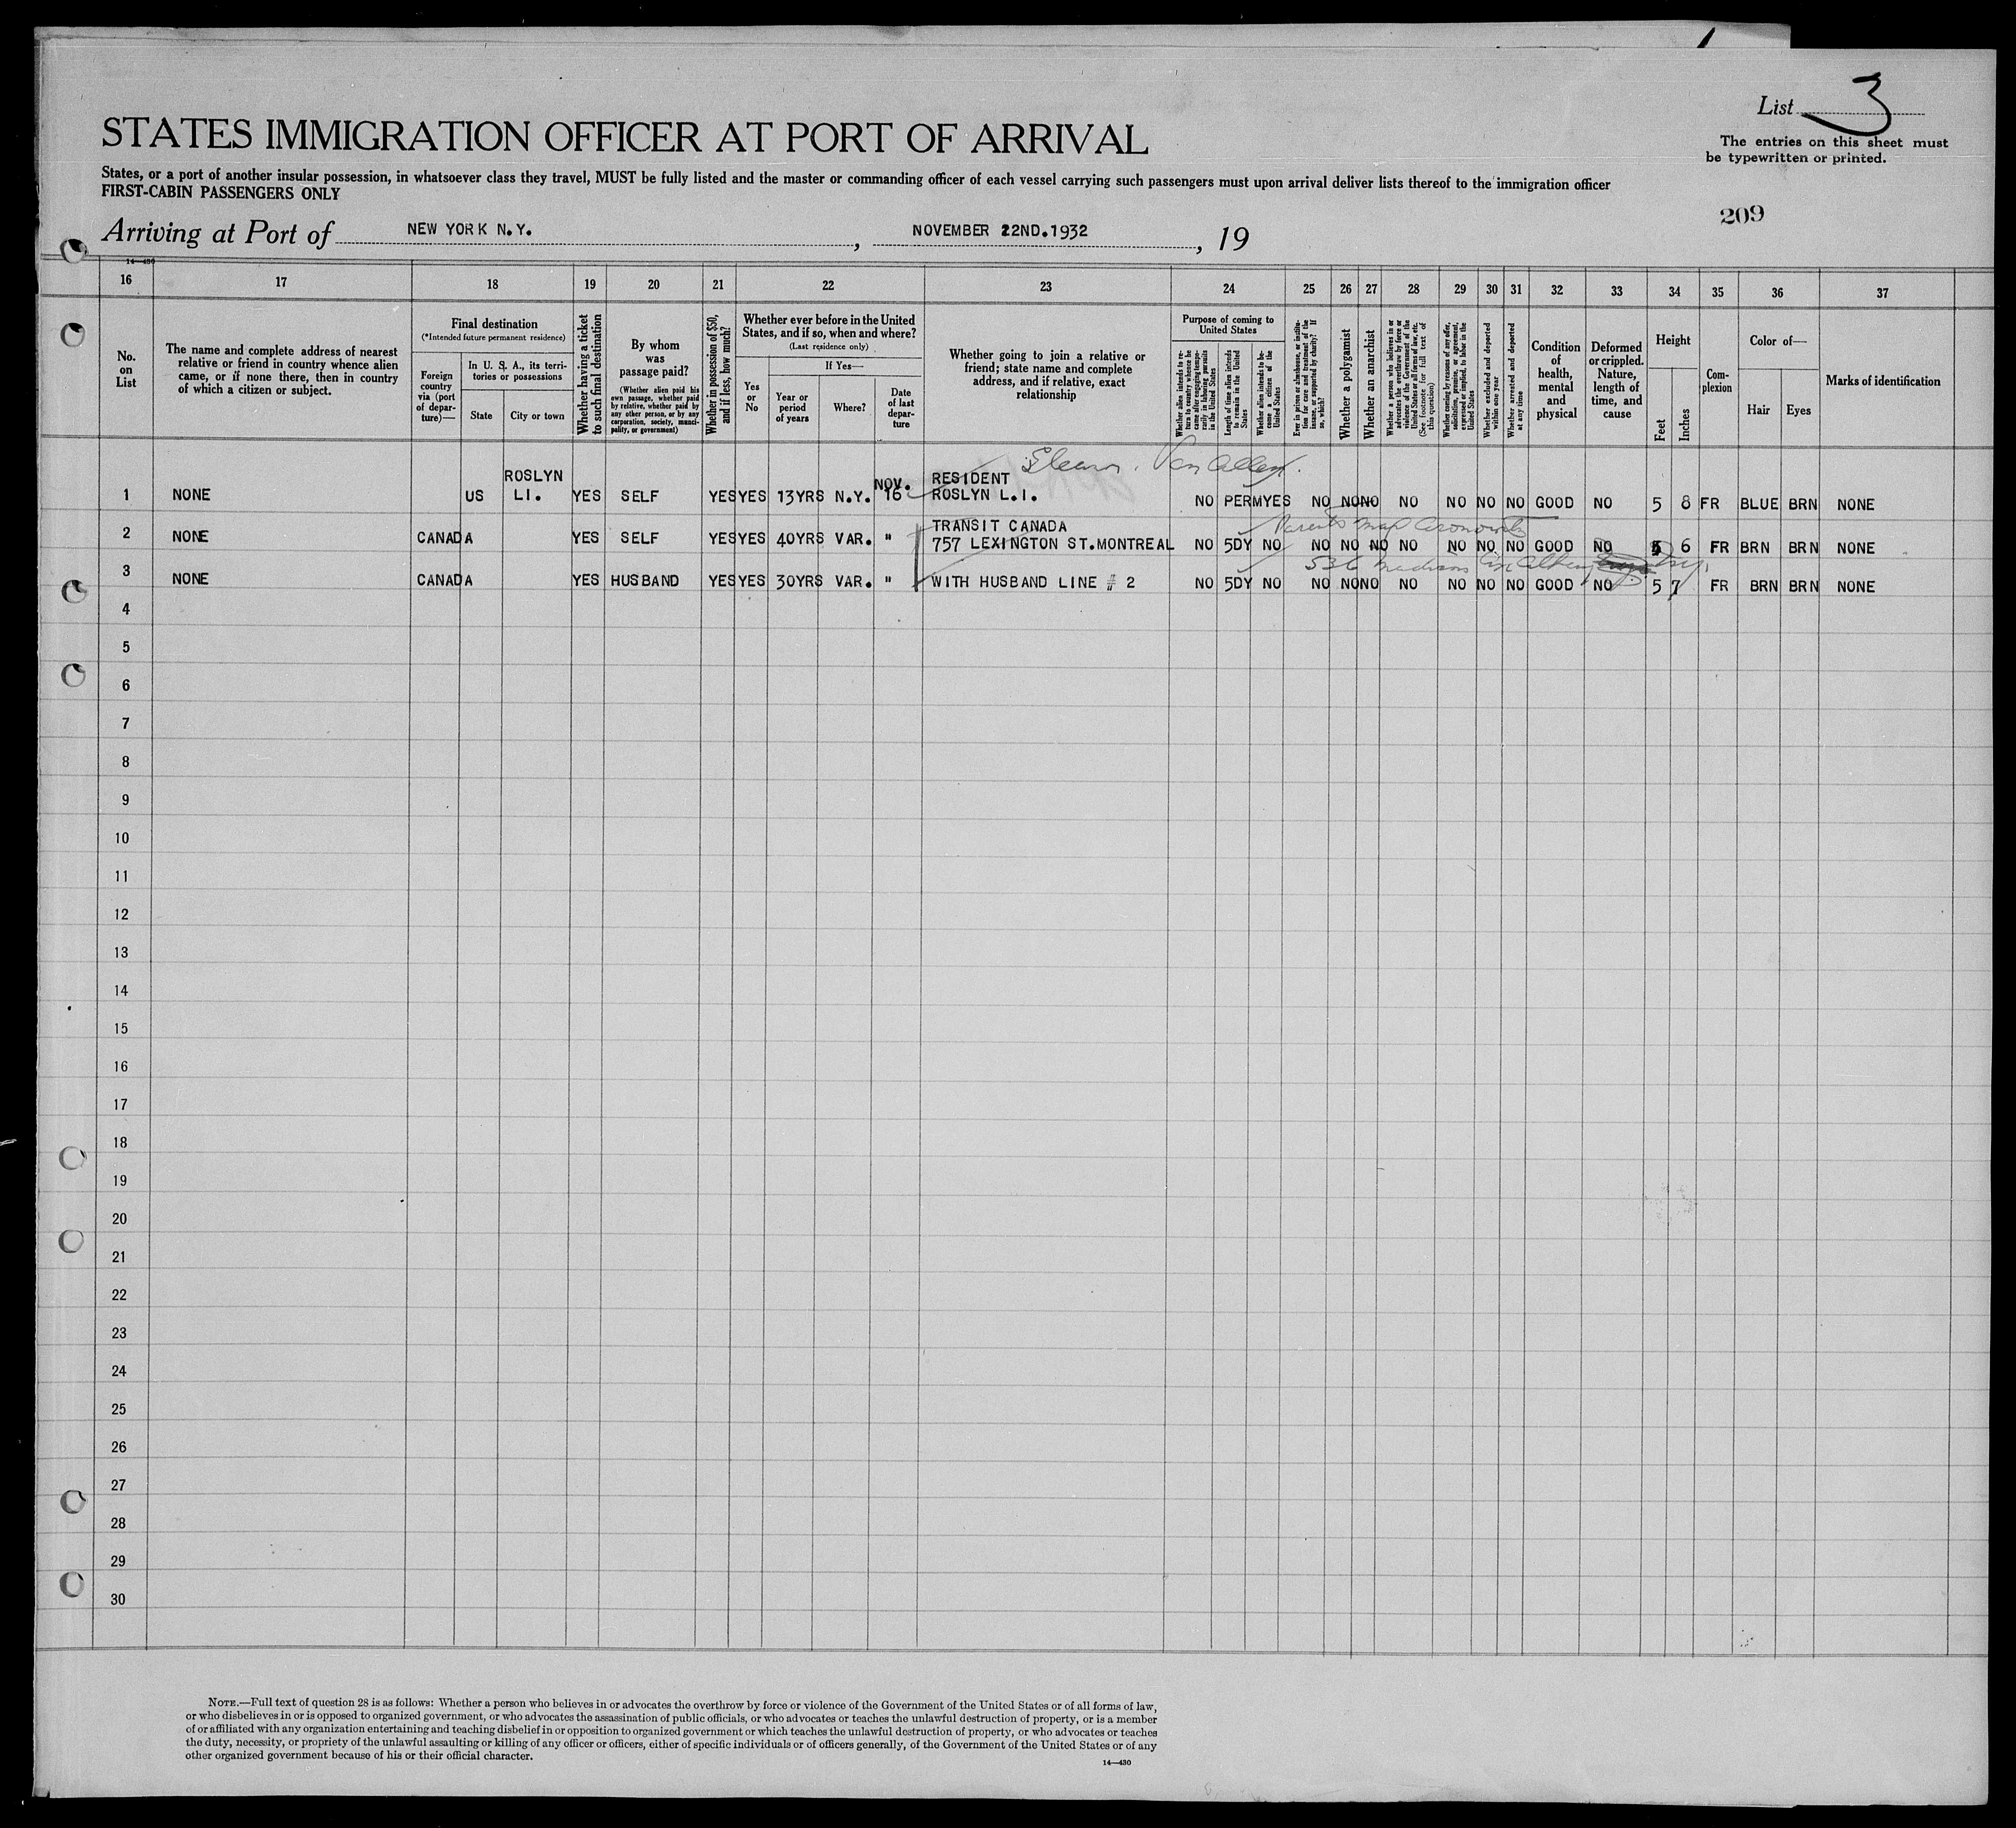 List 3
STATES IMMIGRATION OFFICER AT PORT OF ARRIVAL
The entries on this sheet must
be typewritten or printed.
States, or a port of another insular possession, in whatsoever class they travel, MUST be fully listed and the master or commanding officer of each vessel carrying such passengers must upon arrival deliver lists thereof to the immigration officer
FIRST-CABIN PASSENGERS ONLY
209
Arriving at Port of NEW YORK N.Y. , NOVEMBER 22ND.1932 , 19
14—430
16 17 18 19 20 21 22 23 24 25 26 27 28 29 30 31 32 33 34 35 36 37
No. on List
The name and complete address of nearest relative or friend in country whence alien came, or if none there, then in country of which a citizen or subject.
Final destination
(*Intended future permanent residence)
Foreign country via (port of departure)—
In U. S. A., its territories or possessions
State
City or town
Whether having a ticket to such final destination
By whom was passage paid?
(Whether alien paid his own passage, whether paid by relative, whether paid by any other person, or by any corporation, society, municipality, or government)
Whether in possession of $50, and if less, how much?
Whether ever before in the United States, and if so, when and where?
(Last residence only)
Yes or No
If Yes—
Year or period of years
Where?
Date of last departure
Whether going to join a relative or friend; state name and complete address, and if relative, exact relationship
Purpose of coming to United States
Whether alien intends to return to country whence he came after engaging temporarily in laboring pursuits in the United States
Length of time alien intends to remain in the United States
Whether alien intends to become a citizen of the United States
Ever in prison or almshouse, or institution for care and treatment of the insane, or supported by charity? If so, which?
Whether a polygamist
Whether an anarchist
Whether a person who believes in or advocates the overthrow by force or violence of the Government of the United States or all forms of law, etc. (See footnote for full text of this question)
Whether coming by reasons of any offer, solicitation, promise, or agreement, expressed or implied, to labor in the United States
Whether excluded and deported within one year
Whether arrested and deported at any time
Condition of health, mental and physical
Deformed or crippled. Nature, length of time, and cause
Height
Feet
Inches
Complexion
Color of—
Hair
Eyes
Marks of identification
Eleanor Van Allen.
1 NONE US ROSLYN LI. YES SELF YES YES 13YRS N.Y. NOV. 16 RESIDENT ROSLYN L.I. NO PERM YES NO NO NO NO NO NO NO GOOD NO 5 8 FR BLUE BRN NONE
Parents
2 NONE CANADA YES SELF YES YES 40YRS VAR. " TRANSIT CANADA 757 LEXINGTON ST.MONTREAL NO 5DY NO NO NO NO NO NO NO NO GOOD NO 5 6 FR BRN BRN NONE
536 Madison
3 NONE CANADA YES HUSBAND YES YES 30YRS VAR. " WITH HUSBAND LINE # 2 NO 5DY NO NO NO NO NO NO NO NO GOOD NO 5 7 FR BRN BRN NONE
4
5
6
7
8
9
10
11
12
13
14
15
16
17
18
19
20
21
22
23
24
25
26
27
28
29
30
NOTE.—Full text of question 28 is as follows: Whether a person who believes in or advocates the overthrow by force or violence of the Government of the United States or of all forms of law,
or who disbelieves in or is opposed to organized government, or who advocates the assassination of public officials, or who advocates or teaches the unlawful destruction of property, or is a member
of or affiliated with any organization entertaining and teaching disbelief in or opposition to organized government or which teaches the unlawful destruction of property, or who advocates or teaches
the duty, necessity, or propriety of the unlawful assaulting or killing of any officer or officers, either of specific individuals or of officers generally, of the Government of the United States or of any
other organized government because of his or their official character.
14—430